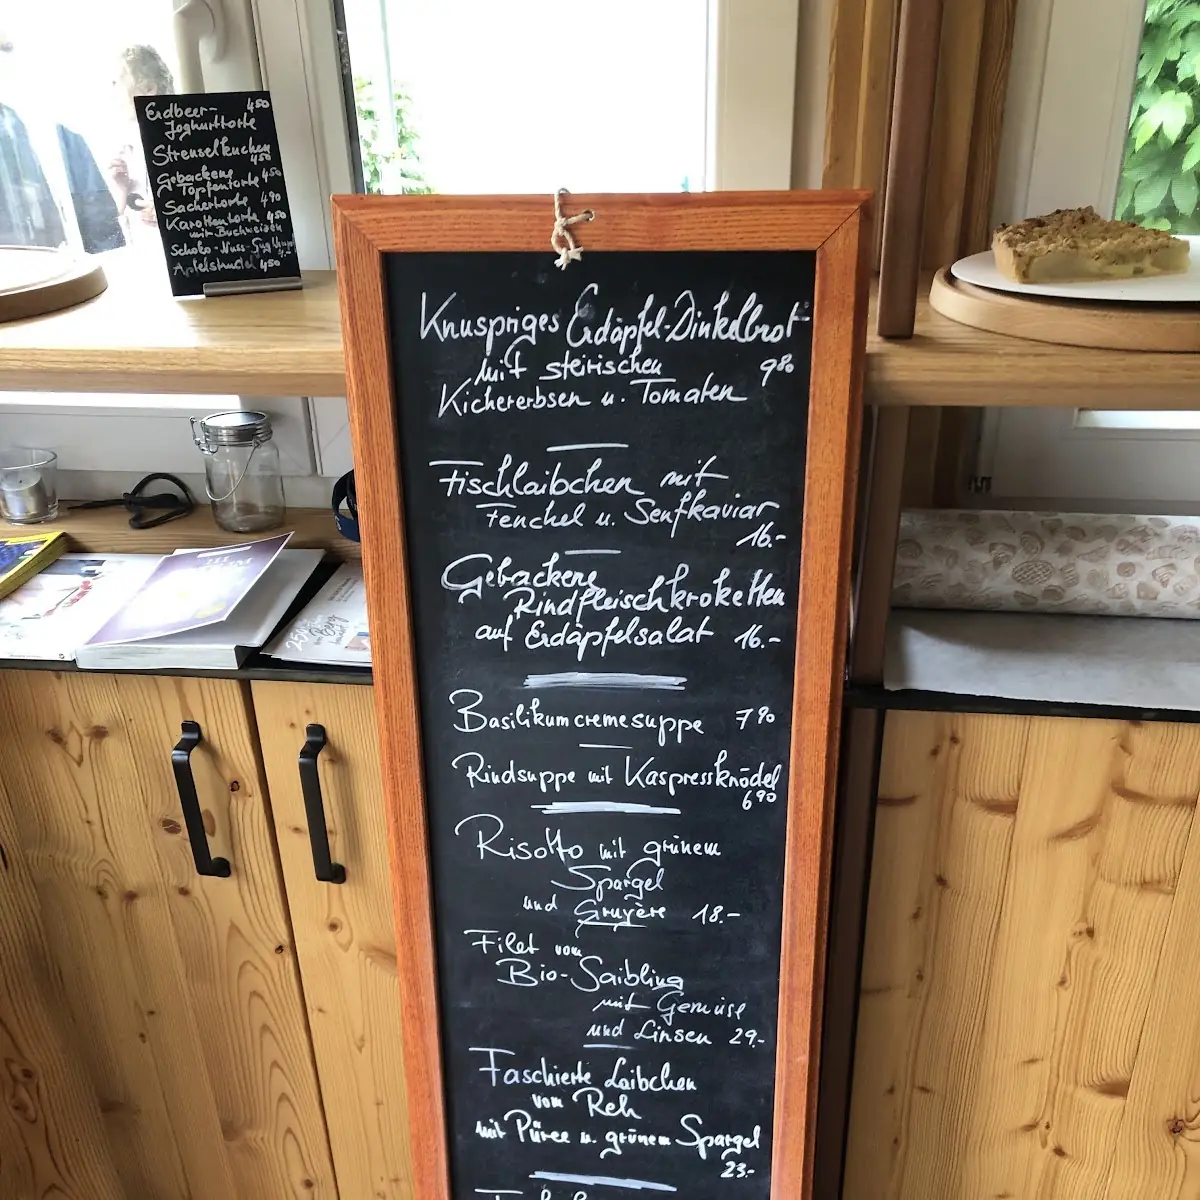 Erdbeer- 450
Joghurttorte
Streuselkuchen
450
Gebackene 450
Topfentorte
Sachertorte 490
Karottentorte 450
mit Buchweizen
Schoko-Nuss-Guglhupf
Apfelstrudel 450
Knuspriges Erdäpfel-Dinkelbrot
mit steirischen 980
Kichererbsen u. Tomaten
Fischlaibchen mit
Fenchel u. Senfkaviar
16.-
Gebackene
Rindfleischkroketten
auf Erdäpfelsalat 16.-
Basilikumcremesuppe 790
Rindsuppe mit Kaspressknödel
690
Risotto mit grünem
Spargel
und Gruyère 18.-
Filet vom
Bio-Saibling
mit Gemüse
und Linsen 29.-
Faschierte Laibchen
vom Reh
mit Püree u. grünem Spargel
23.-